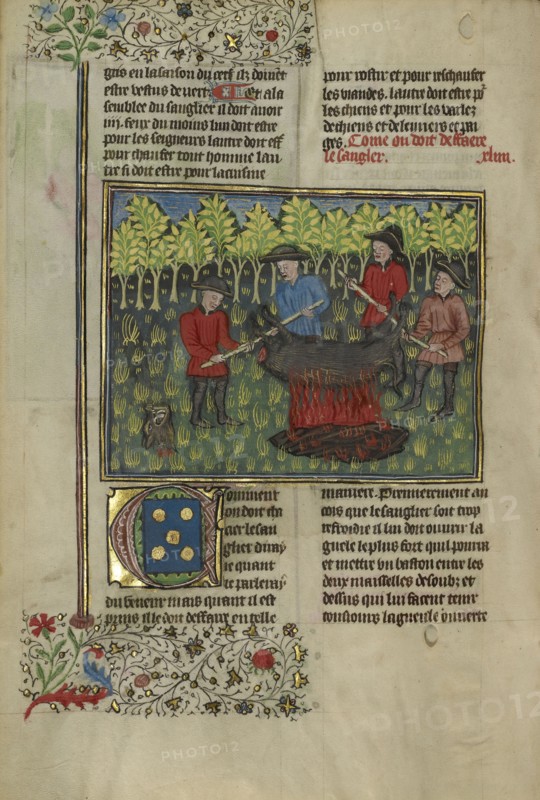 gris en la saison du cerf ilz doivēt
estre vestus de vert. Et a la
semblee du sanglier il doit avoir
iiij. feux du moins lun doit estre
pour les seigneurs lautre doit est̄
pour chaufer tout homme lau
tre si doit estre pour la cuisine
pour rostir et pour reschaufer
les viandes. lautre doit estre po᷑
les chiens et pour les varlez
de chiens et de levriers et pai
ges. Come on doit deffaere
le sanglier. xliiii.
Comment
on doit cha
cier le san
glier diray
ie quant
ie parleray
du veneur mais quant il est
prins il le doit deffaire en telle
maniere. Premierement an
cois que le sanglier soit trop
refroidie il lui doit ouvrir la
guele le plus fort quil pourra
et mettre un baston entre les
deux maisselles desoubz et
dessus qui lui facent tenir
tousiours la gueule ouverte
PHOTO12
PHOTO12
PHOTO12
PHOTO12